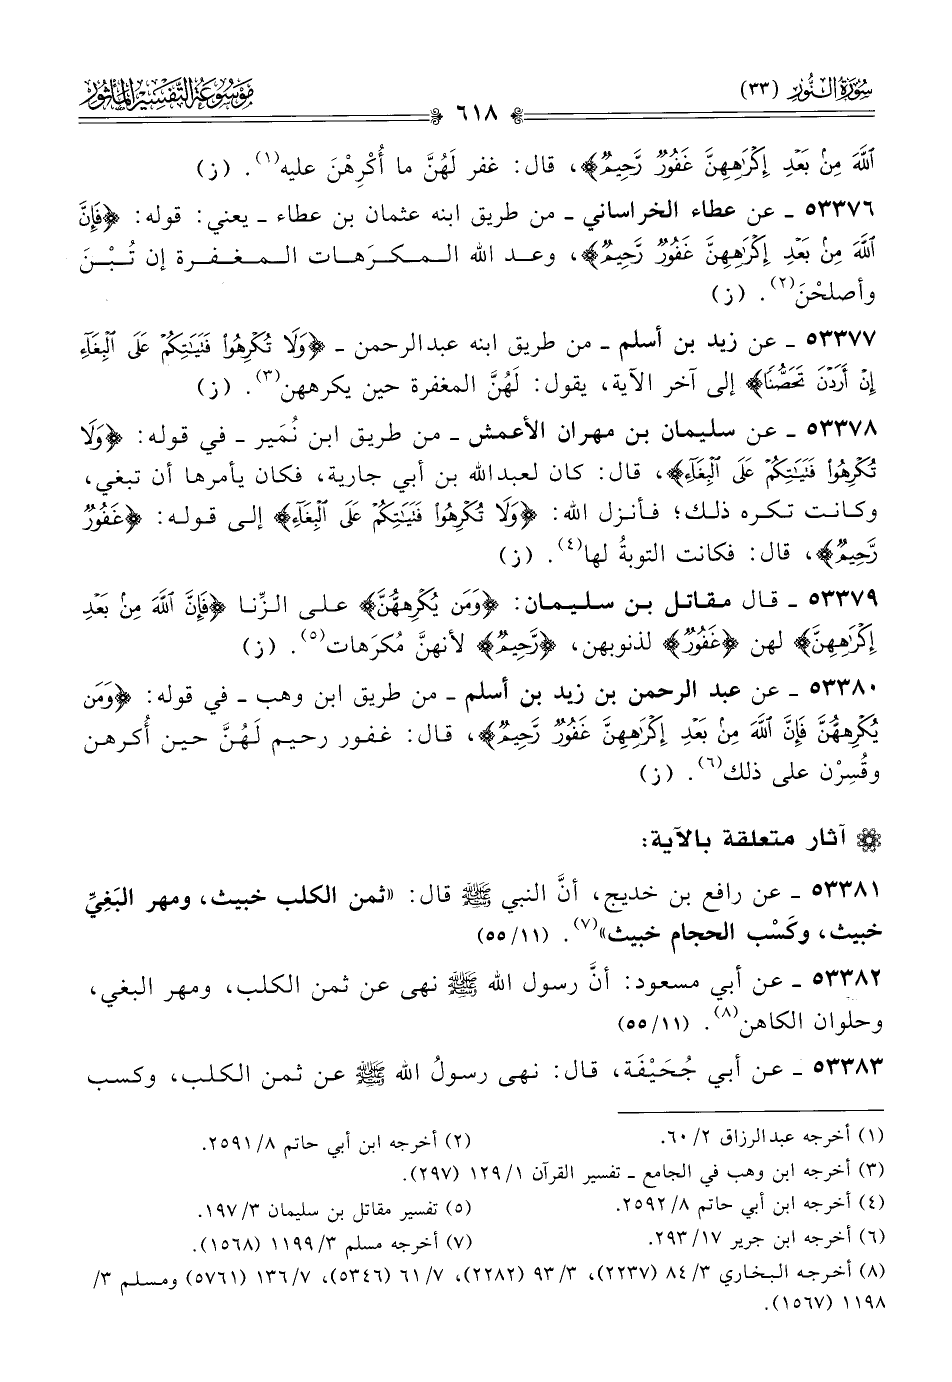 سورة النور (٣٣)
٦١٨
موسوعة التفسير المأثور
ٱللَّهَ مِنۢ بَعْدِ إِكْرَٰهِهِنَّ غَفُورٌ رَّحِيمٌ﴾، قال: غفر لَهُنَّ ما أُكْرِهْنَ عليه(١). (ز)
٥٣٣٧٦ ـ عن عطاء الخراساني ـ من طريق ابنه عثمان بن عطاء ـ يعني: قوله: ﴿فَإِنَّ
ٱللَّهَ مِنۢ بَعْدِ إِكْرَٰهِهِنَّ غَفُورٌ رَّحِيمٌ﴾، وعد الله المكرَهات المغفرة إن تُبْنَ
وأصلحْنَ(٢). (ز)
٥٣٣٧٧ ـ عن زيد بن أسلم ـ من طريق ابنه عبدالرحمن ـ ﴿وَلَا تُكْرِهُوا۟ فَتَيَٰتِكُمْ عَلَى ٱلْبِغَآءِ
إِنْ أَرَدْنَ تَحَصُّنًا﴾ إلى آخر الآية، يقول: لَهُنَّ المغفرة حين يكرههن(٣). (ز)
٥٣٣٧٨ ـ عن سليمان بن مهران الأعمش ـ من طريق ابن نُمَير ـ في قوله: ﴿وَلَا
تُكْرِهُوا۟ فَتَيَٰتِكُمْ عَلَى ٱلْبِغَآءِ﴾، قال: كان لعبدالله بن أبي جارية، فكان يأمرها أن تبغي،
وكانت تكره ذلك؛ فأنزل الله: ﴿وَلَا تُكْرِهُوا۟ فَتَيَٰتِكُمْ عَلَى ٱلْبِغَآءِ﴾ إلى قوله: ﴿غَفُورٌ
رَّحِيمٌ﴾، قال: فكانت التوبةُ لها(٤). (ز)
٥٣٣٧٩ ـ قال مقاتل بن سليمان: ﴿وَمَن يُكْرِههُّنَّ﴾ على الزِّنا ﴿فَإِنَّ ٱللَّهَ مِنۢ بَعْدِ
إِكْرَٰهِهِنَّ﴾ لهن ﴿غَفُورٌ﴾ لذنوبهن، ﴿رَّحِيمٌ﴾ لأنهنَّ مُكرَهات(٥). (ز)
٥٣٣٨٠ ـ عن عبد الرحمن بن زيد بن أسلم ـ من طريق ابن وهب ـ في قوله: ﴿وَمَن
يُكْرِههُّنَّ فَإِنَّ ٱللَّهَ مِنۢ بَعْدِ إِكْرَٰهِهِنَّ غَفُورٌ رَّحِيمٌ﴾، قال: غفور رحيم لَهُنَّ حين أُكرهن
وقُسِرْن على ذلك(٦). (ز)
آثار متعلقة بالآية:
٥٣٣٨١ ـ عن رافع بن خديج، أنَّ النبي ﷺ قال: «ثمن الكلب خبيث، ومهر البَغِيِّ
خبيث، وكَسْب الحجام خبيث»(٧). (١١/ ٥٥)
٥٣٣٨٢ ـ عن أبي مسعود: أنَّ رسول الله ﷺ نهى عن ثمن الكلب، ومهر البغي،
وحلوان الكاهن(٨). (١١/ ٥٥)
٥٣٣٨٣ ـ عن أبي جُحَيْفَة، قال: نهى رسولُ الله ﷺ عن ثمن الكلب، وكسب
(١) أخرجه عبدالرزاق ٢/ ٦٠. (٢) أخرجه ابن أبي حاتم ٨/ ٢٥٩١.
(٣) أخرجه ابن وهب في الجامع ـ تفسير القرآن ١/ ١٢٩ (٢٩٧).
(٤) أخرجه ابن أبي حاتم ٨/ ٢٥٩٢. (٥) تفسير مقاتل بن سليمان ٣/ ١٩٧.
(٦) أخرجه ابن جرير ١٧/ ٢٩٣. (٧) أخرجه مسلم ٣/ ١١٩٩ (١٥٦٨).
(٨) أخرجه البخاري ٣/ ٨٤ (٢٢٣٧)، ٣/ ٩٣ (٢٢٨٢)، ٧/ ٦١ (٥٣٤٦)، ٧/ ١٣٦ (٥٧٦١) ومسلم ٣/
١١٩٨ (١٥٦٧).